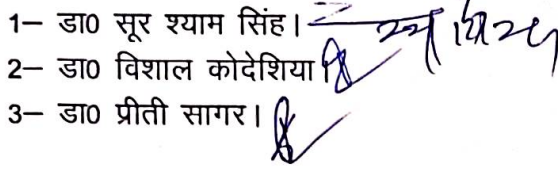 1– डा0 सूर श्याम सिंह।
2– डा0 विशाल कोदेशिया
3– डा0 प्रीती सागर।